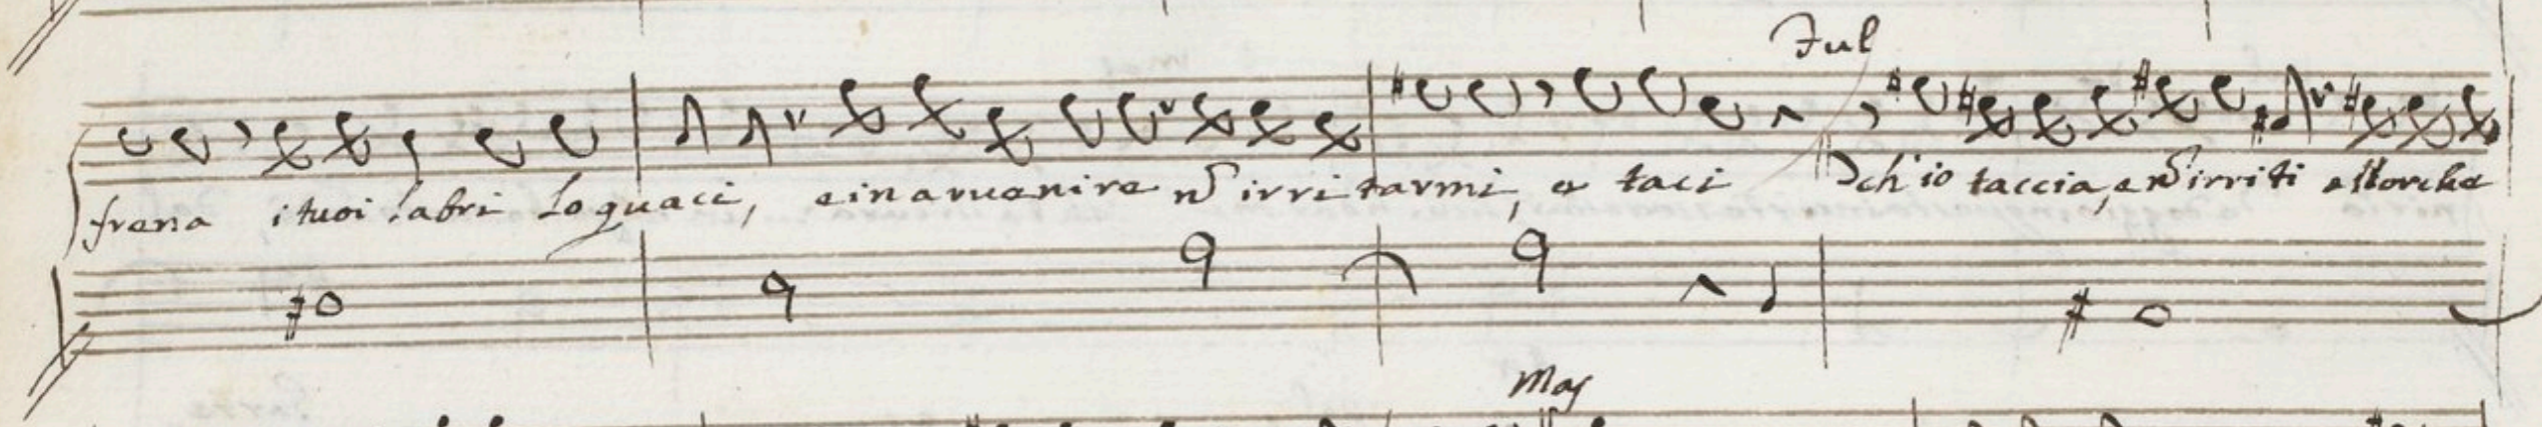 Ful
frena i tuoi labri loquaci, e in avvenire nō irritarmi, e taci ch'io taccia, e nō irriti allorche
Mas